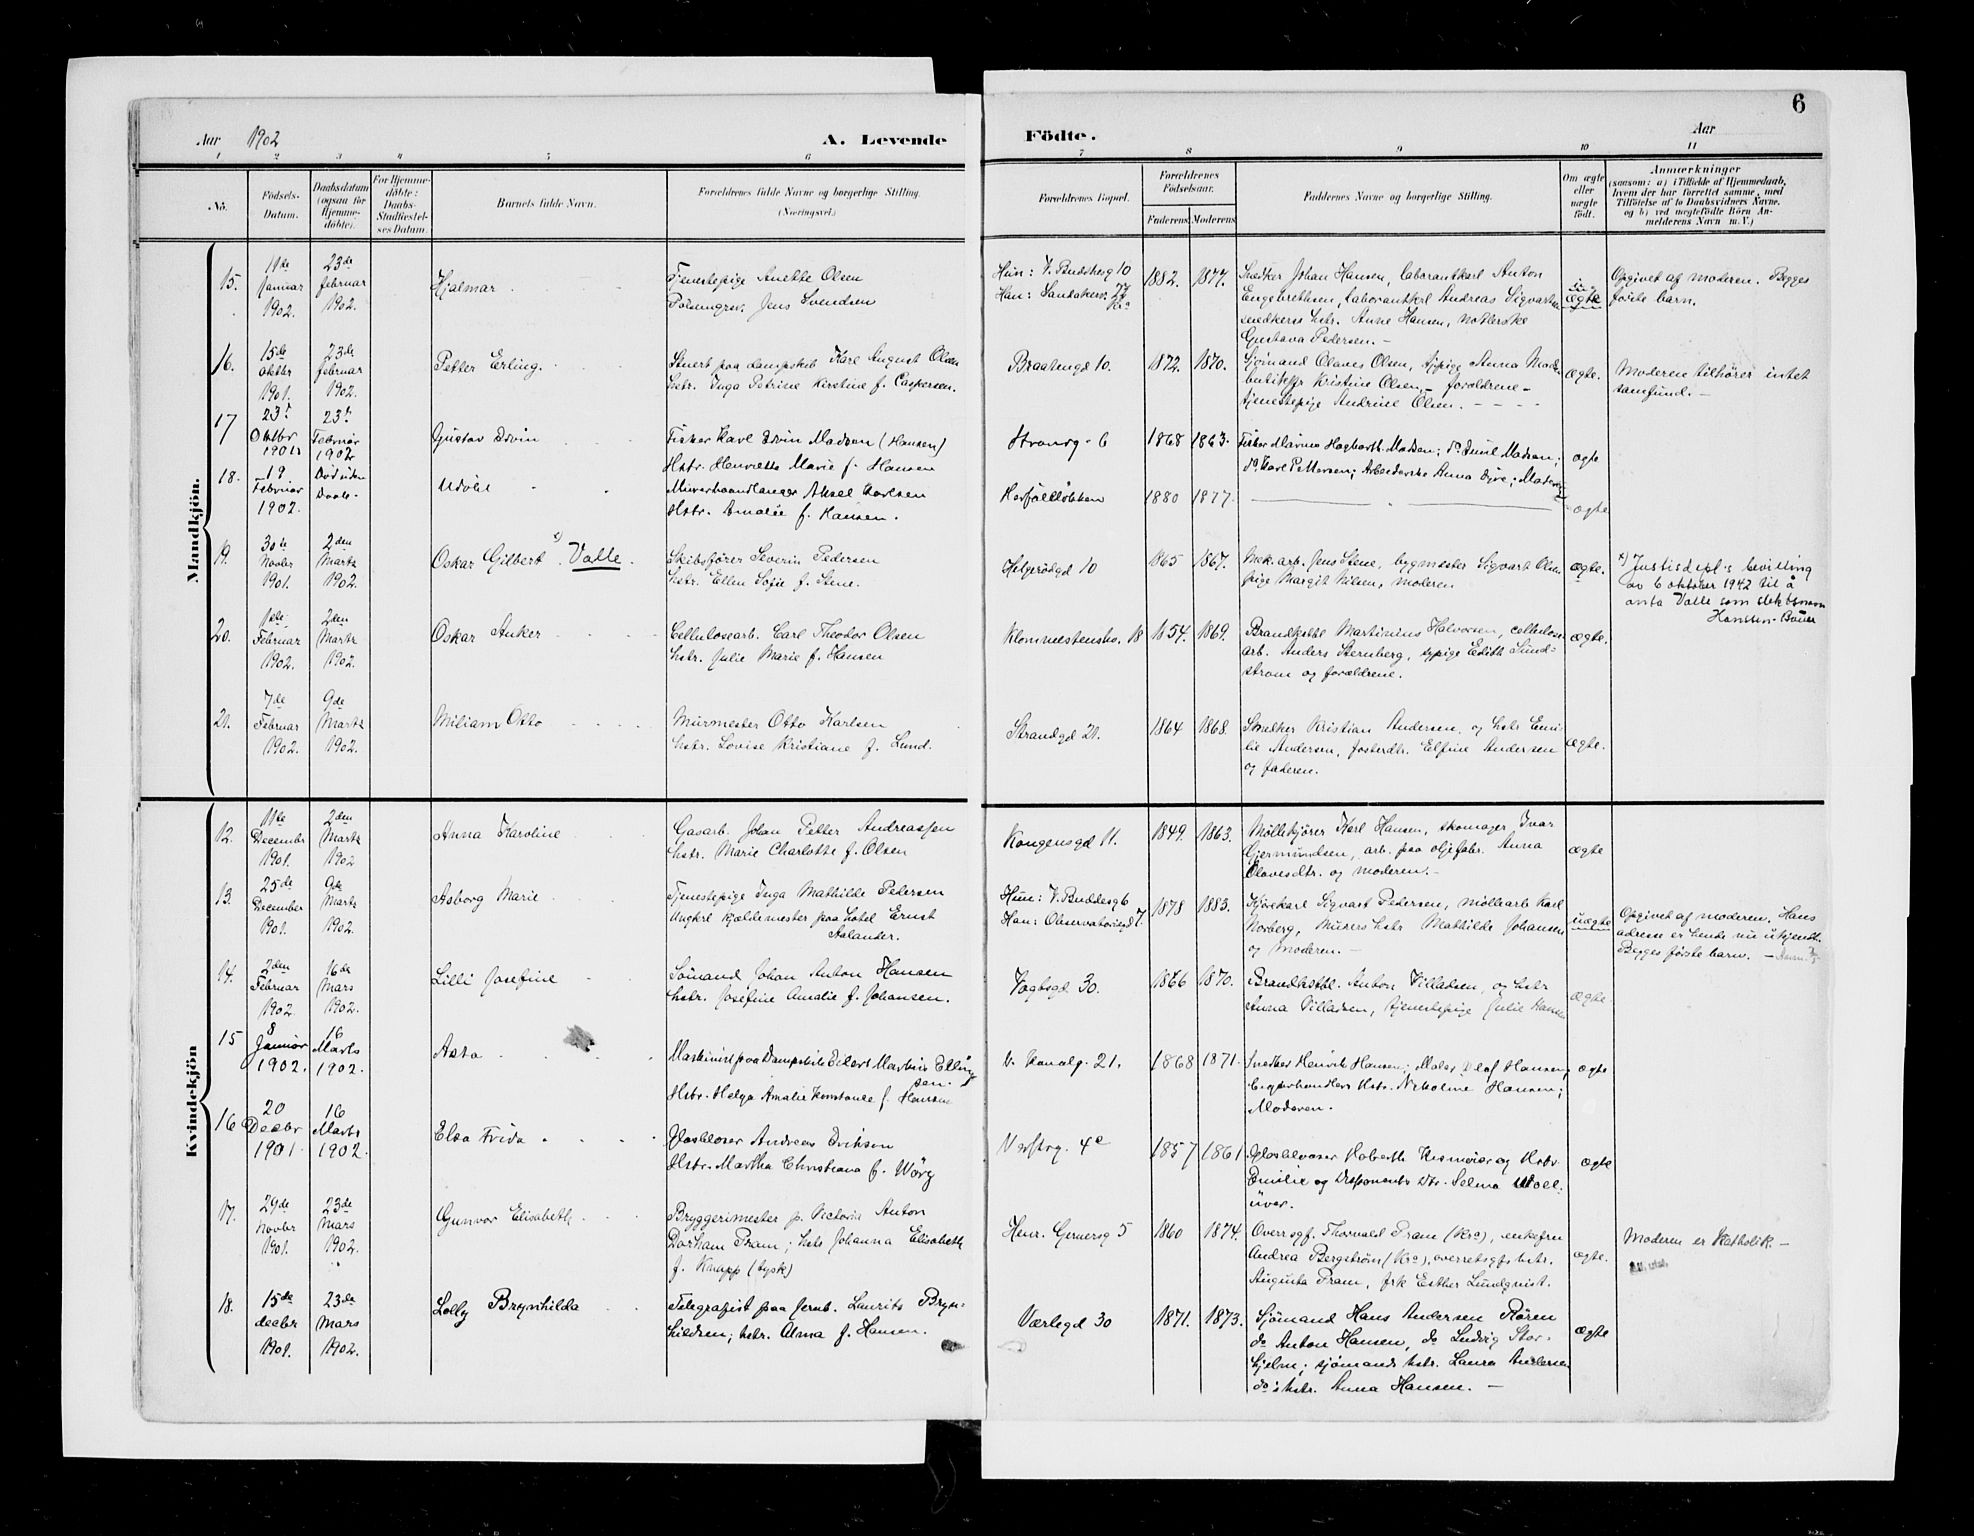 6
Aar 1902
A. Levende Födte.
Aar
1 2 3 4 5 6 7 8 9 10 11
No.
Födsels-Datum.
Daabsdatum (ogsaa for Hjemmedöbte).
For Hjemmedöbte: Daabs-Stadfæstelses Datum.
Barnets fulde Navn.
Forældrenes fulde Navne og borgerlige Stilling. (Næringsvei.)
Forældrenes Bopæl.
Forældrenes Födselsaar.
Faderens Moderens
Faddernes Navne og borgerlige Stilling.
Om ægte eller uægte födt.
Anmærkninger
(saasom: a) i Tilfælde af Hjemmedaab,
hvem der har forrettet samme, med
Tilföielse af to Daabsvidners Navne.
og b) ved uægtefödte Börn An-
melderens Navn m. V.)
Mandkjön.
15.
11te Januar 1902.
23de februar 1902.
Hjalmar
Tjenestepige Anette Olsen
Jens Svendsen
Hun: V. Buddeberg 10
Han:
1882. 1877.
Snedker Johan Hansen, laborantkarl Anton
Engebrethsen, laborantkarl Andreas Sigvartsen
snedkers hstr. Anne Hansen,
Gustava Pedersen. –
uægte
Opgivet af moderen. Begges
første barn.
16.
15de oktbr 1901.
23de februar 1902.
Petter Erling.
Stuert paa Dampskib Karl August Olsen
hstr. Inga Petrine Kirstine f. Caspersen.
Braatengd 10.
1872. 1870.
Sjømand Olaves Olsen, sypige Anna
Kristine Olsen – forældrene –
tjenestepige Andrine Olsen.
ægte.
Moderen tilhører intet
samfund. –
17
23d Oktbr 1901
23d Februar 1902
Gustav Edvin
Fisker Karl Edvin Madsen (Hansen)
Hstr. Henriette Marie f. Hansen
Strandg. 6
1868 1863.
Fisker Marius Hagbarth Madsen; do Emil Madsen;
do. Karl Pettersen; Arbeiderske Anna Dyre; Moderen
ægte
18.
19 Februar 1902.
Död uden Daab.
Udöbt
Murerhaandlanger Aksel Karlsen
Hstr. Amalie f. Hansen.
1880 1877.
ægte
19.
30te Novbr 1901.
2den Marts 1902.
Oskar Gilbert x) Valle.
Skibsfører Severin Pedersen
hstr. Ellen Sofie f. Stene.
Helgerødgd 10
1865 1867.
Mek.arb. Jens Stene, bygmester Sigvart Olsen
pige Margit Nilsen, moderen.
ægte.
x) Justisdept.s bevilling
av 6 oktober 1942 til å
anta Valle som slektsnavn
20.
1ste Februar 1902.
2den Marts 1902.
Oskar Anker
Cellulosearb. Carl Theodor Olsen
hstr. Julie Marie f. Hansen
18
1854. 1869.
Brandkstbl Martinius Halvorsen, cellulose
arb. Anders Sternberg, sypige Edith Sund-
strøm og forældrene.
ægte.
21.
7de Februar 1902.
9de Marts 1902.
Miliam Otto
Murmester Otto Karlsen
hstr. Lovise Kristiane f. Lund.
Strandgd 21.
1864 1868.
Snedker Kristian Andersen og hstr Emi-
lie Andersen, fosterdtr. Elfine Andersen
og faderen.
ægte.
Kvindekjön
12.
11te December 1901.
2den Marts 1902
Anna Karoline
Gasarb. Johan Petter Andreassen
hstr. Marie Charlotte f. Olsen
Kongensgd 11.
1849. 1863.
Møllekjører Karl Hansen, skomager Ivar
Gjermundsen, arb. paa oljefabr. Anna
Olavesdtr. og moderen. –
ægte
13.
25de December 1901.
9de Marts 1902.
Asborg Marie
Tjenestepige Inga Mathilde Pedersen
Ungkrl kjældermester paa hotel Ernst
Aalander.
Hun: V. Buddesg 6
Han: Observatoriegd 7.
1878 1883.
Kjørekarl Sigvart Pedersen, møllearb Karl
Norberg, Murers hstr Mathilde Johansen
og moderen. –
uægte
Opgivet af moderen. Hans
adresse er hende nu ukjendt.
Begges første barn. –
14.
2den Februar 1902.
16de Mars 1902.
Lilli Josefine
Sömand Johan Anton Hansen
hstr. Josefine Amalie f. Johansen.
Vogtsgd 30.
1866 1870.
Brandkstbl. Anton Villadsen, og hstr
Anna Villadsen, tjenestepige Julie Hansen
ægte.
15
8 Januar 1902.
16 Marts 1902.
Asta
Maskinist paa Dampskib Eilert Martinius Elling
sen.
Hstr. Helga Amalie Konstance f. Hansen
V. Kanalg. 21.
1868 1871.
Snedker Henrik Hansen; Maler Olaf Hansen;
Hstr. Nikoline Hansen;
Moderen.
ægte
16
20 Decbr 1901.
16 Marts 1902.
Elsa Frida
Glasbloser Andreas Eriksen
Hstr. Martha Christiana f. Wörg
Verftsg. 4c
1857 1861.
og Hstr
Emilie og Dtr. Selma
ægte
17.
29de Novbr 1901.
23de Mars 1902.
Gunvor Elisabeth
Bryggerimester p. Victoria Anton
Dorham Pram; hstr Johanna Elisabeth
f. Knapp (tysk)
Henr. Gernersg 5
1860 1874.
Overrsgf. Thorvald Pram (Kra), enkefru
Andrea Bergstrøm (Kra), overretsgfs hstr.
Augusta Pram, frk Esther Lundqvist.
ægte.
Moderen er Katholik. –
18.
15de decbr 1901.
23de Mars 1902.
Lolly Brynhilda
Telegrafist paa Jernb. Laurits Bryn-
hildsen; hstr. Alma f. Hansen.
Værlegd 30
1871. 1873.
Sjømand Hans Andersen Røren
do Anton Hansen, do Ludvig Stor-
hjelm; sjømands hstr. Laura Andersen
do's hstr. Anna Hansen. –
ægte